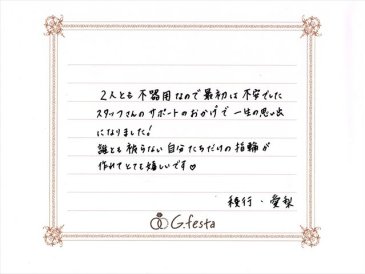 2人とも 不器用なので最初は不安でした
スタッフさんのサポートのおかげで 一生の思い出
になりました!
誰とも被らない自分たちだけの指輪が
作れてとても嬉しいです♡
・愛梨
G.festa